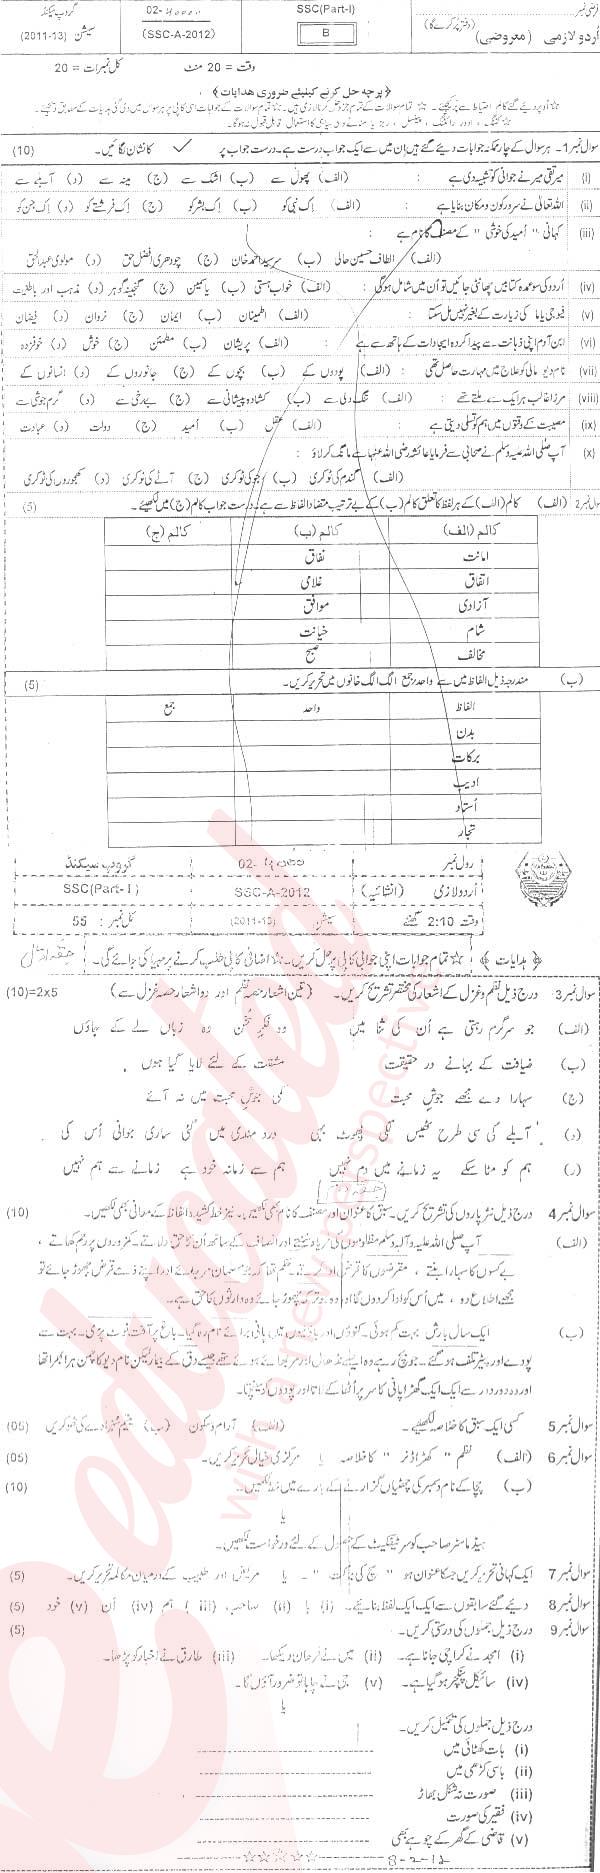 گروپ سیکنڈ
سیشن (2011-13)
02-
(SSC-A-2012)
SSC(Part-I)
B
فرضی نمبر
اُردو لازمی (معروضی) (دفتر پُر کرے گا)
وقت = 20 منٹ کل نمبرات = 20
﴿ پرچہ حل کرنے کیلئے ضروری ہدایات ﴾
سوال نمبر 1۔ ہر سوال کے چار ممکنہ جوابات دیئے گئے ہیں اِن میں سے ایک جواب درست ہے۔ درست جواب پر ✓ کا نشان لگائیں۔ (10)
(i) میر تقی میر نے جوانی کو تشبیہ دی ہے : (الف) پھول سے (ب) اشک سے (ج) مینہ سے (د) آبلے سے
(ii) اللہ تعالیٰ نے سرورِ کون و مکاں بنایا ہے : (الف) اِک نبی کو (ب) اِک بشر کو (ج) اِک فرشتے کو (د) اِک جن کو
(iii) کہانی "اُمید کی خوشی" کے مصنف کا نام ہے :
(الف) الطاف حسین حالی (ب) سر سید احمد خان (ج) چودھری افضل حق (د) مولوی عبدالحق
(iv) اُردو کی سو عمدہ کتابیں چھانٹی جائیں تو اُن میں شامل ہو گی : (الف) خواب ہستی (ب) یاسمین (ج) گنجینہ گوہر (د) مذہب اور باطنیت
(v) فیوجی یاما کی زیارت کے بغیر نہیں مل سکتا : (الف) اطمینان (ب) ایمان (ج) نروان (د) فیضان
(vi) ابن آدم اپنی ذہانت سے پیدا کردہ ایجادات کے ہاتھ سے ہے : (الف) پریشان (ب) مطمئن (ج) خوش (د) خوفزدہ
(vii) نام دیو مالی کو علاج میں مہارت حاصل تھی : (الف) پودوں کے (ب) بچوں کے (ج) جانوروں کے (د) انسانوں کے
(viii) مرزا غالب ہر ایک سے ملتے تھے : (الف) تنگ دلی سے (ب) کشادہ پیشانی سے (ج) بے رخی سے (د) گرم جوشی سے
(ix) مصیبت کے وقتوں میں ہم کو تسلی دیتی ہے : (الف) عقل (ب) اُمید (ج) دولت (د) عبادت
(x) آپ صلی اللہ علیہ وسلم نے صحابی سے فرمایا عائشہ رضی اللہ عنہا سے مانگ کر لاؤ :
(الف) گندم کی ٹوکری (ب) جو کی ٹوکری (ج) آٹے کی ٹوکری (د) کھجوروں کی ٹوکری
سوال نمبر 2 (الف) کالم (الف) کے ہر لفظ کا تعلق کالم (ب) کے بے ترتیب متضاد الفاظ سے ہے۔ درست جواب کالم (ج) میں لکھیئے۔ (5)
کالم (الف) کالم (ب) کالم (ج)
امانت نفاق
اتفاق غلامی
آزادی موافق
شام خیانت
مخالف صبح
(ب) مندرجہ ذیل الفاظ میں سے واحد، جمع الگ الگ خانوں میں تحریر کریں۔ (5)
الفاظ واحد جمع
بدن
برکات
ادیب
اُستاد
تجار
رول نمبر 02- گروپ سیکنڈ
اُردو لازمی (انشائیہ) SSC-A-2012 SSC(Part-I)
وقت 2:10 گھنٹے سیشن (2011-13) کل نمبر: 55
﴿ ہدایات ﴾ ☆ تمام جوابات اپنی جوابی کاپی پر حل کریں۔ ☆ اضافی کاپی طلب کرنے پر مہیا کی جائے گی۔ حصہ اوّل
سوال نمبر 3 درج ذیل نظم و غزل کے اشعار کی مختصر تشریح کریں۔ (تین اشعار حصہ نظم اور دو اشعار حصہ غزل سے) (10)=2x5
(الف) جو سرگرم رہتی ہے اُن کی ثنا میں وہ فکرِ سخن وہ زباں لے کے جاؤں
(ب) ضیافت کے بہانے در حقیقت مشقت کے لئے لایا گیا ہوں
(ج) سہارا دے مجھے جوشِ محبت کمی جوشِ محبت میں نہ آئے
(د) آبلے کی سی طرح ٹھیس لگی پھوٹ بہی درد مندی میں گئی ساری جوانی اُس کی
(ر) ہم کو مٹا سکے یہ زمانے میں دم نہیں ہم سے زمانہ خود ہے زمانے سے ہم نہیں
سوال نمبر 4 درج ذیل نثر پاروں کی تشریح کریں۔ سبق کا عنوان اور مصنف کا نام بھی لکھیں۔ نیز خط کشیدہ الفاظ کے معانی بھی لکھیں۔ (10)
(الف) آپ صلی اللہ علیہ وآلہ وسلم مظلوموں کی فریاد سنتے اور انصاف کے ساتھ اُن کا حق دلاتے۔ کمزوروں پر رحم کھاتے،
بے کسوں کا سہارا بنتے، مقروضوں کا قرض ادا کرتے۔ حکم تھا کہ جو مسلمان مر جائے اور اپنے ذمے قرض چھوڑ جائے تو
مجھے اطلاع دو، میں اس کو ادا کر دوں گا اور وہ جو ترکہ چھوڑ جائے وہ وارثوں کا حق ہے۔
(ب) ایک سال بارش بہت کم ہوئی۔ کنوؤں اور باؤلیوں میں پانی برائے نام رہ گیا۔ باغ پر آفت ٹوٹ پڑی۔ بہت سے
پودے اور پیڑ تلف ہو گئے۔ جو بچ رہے وہ ایسے نڈھال اور مرجھائے ہوئے تھے جیسے دق کے بیمار لیکن نام دیو کا چمن ہرا بھرا تھا
اور وہ دور دور سے ایک ایک گھڑا پانی کا سر پر اُٹھا کے لاتا اور پودوں کو سینچتا۔
سوال نمبر 5 کسی ایک سبق کا خلاصہ لکھیئے۔ (الف) آرام و سکون (ب) یتیم شہزادے کی ٹھوکریں (05)
سوال نمبر 6 (الف) نظم "کھڑا ڈنر" کا خلاصہ یا مرکزی خیال تحریر کریں۔ (05)
(ب) چچا کے نام دسمبر کی چھٹیاں گزارنے کے بارے میں خط لکھیں۔ (10)
یا
ہیڈ ماسٹر صاحب کو سرٹیفکیٹ کے حصول کے لئے درخواست لکھیں۔
سوال نمبر 7 ایک کہانی تحریر کریں جس کا عنوان ہو "سچ کی برکت"۔ یا مریض اور طبیب کے درمیان مکالمہ تحریر کریں۔ (5)
سوال نمبر 8 دیئے گئے سابقوں سے ایک ایک لفظ بنایئے۔ (i) با (ii) صاحب (iii) ہم (iv) اَن (v) خود (5)
سوال نمبر 9 درج ذیل جملوں کی درستی کریں۔ (5)
(i) امجد نے کراچی جانا ہے۔ (ii) میں نے فرحان دیکھا۔ (iii) طارق نے اخبار کو پڑھا۔
(iv) سائیکل پنکچر ہو گیا ہے۔ (v) جی نے چاہا تو ضرور آؤں گا۔
یا
درج ذیل جملوں کی تکمیل کریں۔
(i) بات کھٹائی میں
(ii) باسی کڑھی میں
(iii) صورت نہ شکل بھاڑ
(iv) فقیر کی صورت
(v) قاضی کے گھر کے چوہے بھی
8-2-12
educated
with a new perspective